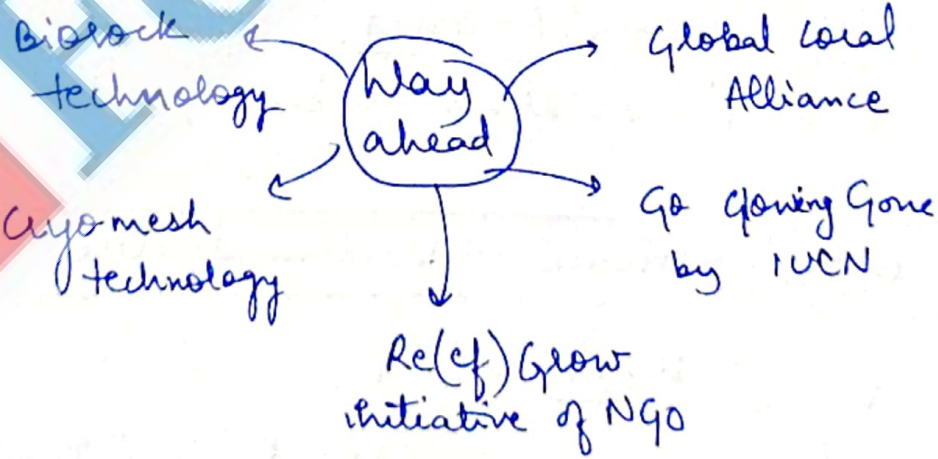 Way
ahead
Biorock
technology
Global Coral
Alliance
Cryomesh
technology
Go Glowing Gone
by IUCN
Re(ef) Grow
initiative of NGO